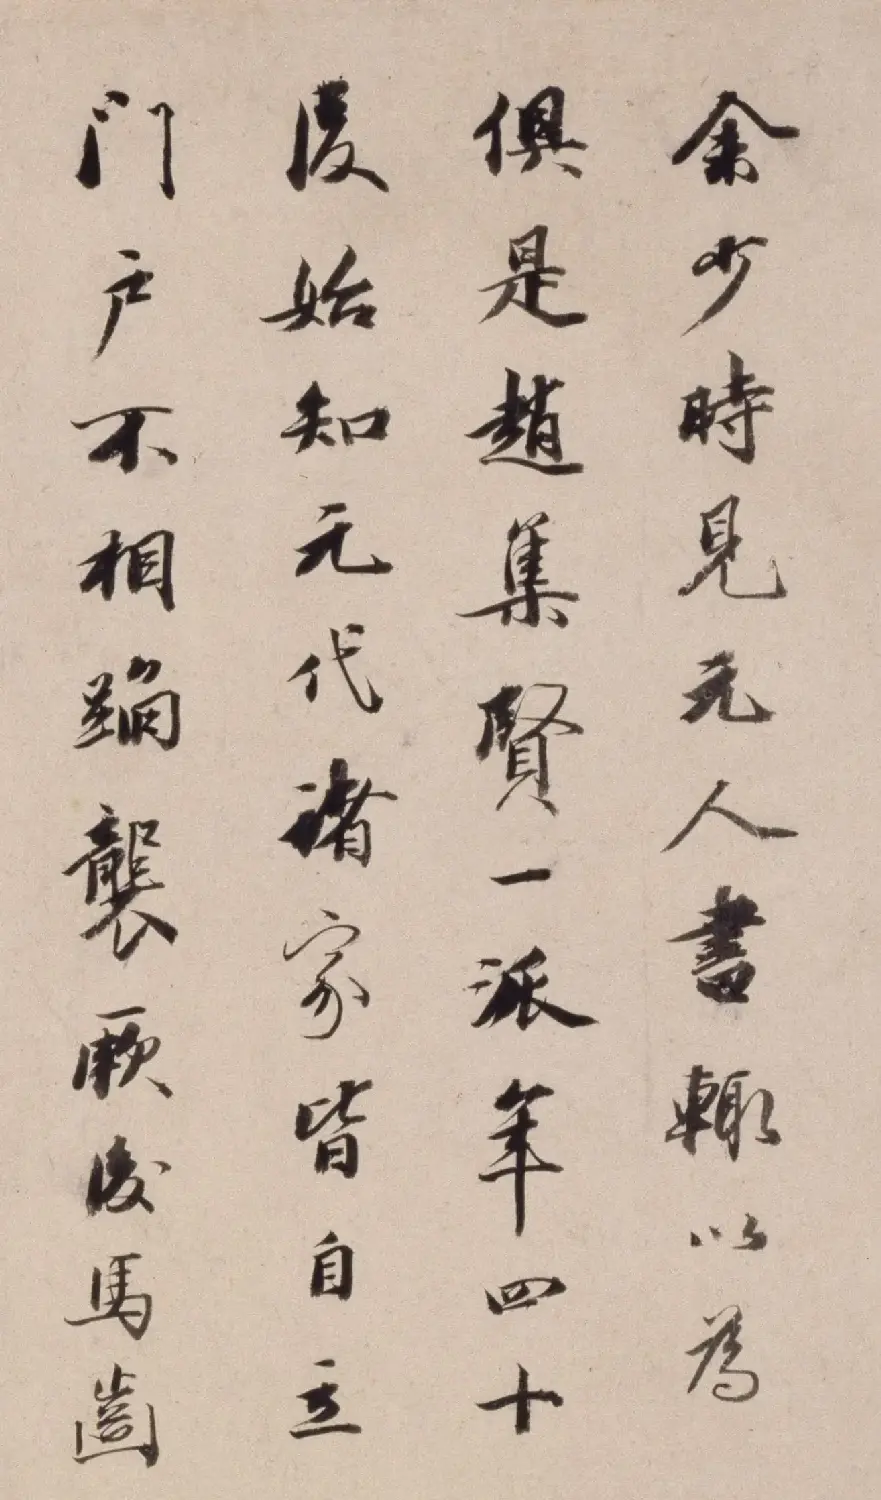 余少時見元人書輙以為
俱是趙集賢一派年四十
後始知元代諸家皆自立
門户不相蹈襲厥後馬齒